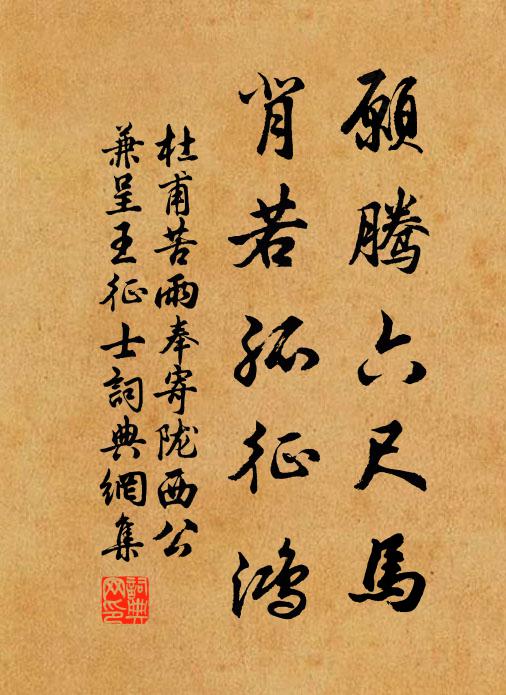 願騰六尺馬
肖若孤征鴻
杜甫苦雨奉寄陇西公
兼呈王征士詞典網集
詞典網印